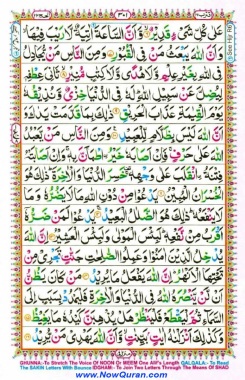 ٣٠١
عَلٰى كُلِّ شَىْءٍ قَدِيْرٌ وَّاَنَّ السَّاعَةَ اٰتِيَةٌ لَّا رَيْبَ فِيْهَا
وَاَنَّ اللّٰهَ يَبْعَثُ مَنْ فِى الْقُبُوْرِ وَمِنَ النَّاسِ مَنْ يُّجَادِلُ
فِى اللّٰهِ بِغَيْرِ عِلْمٍ وَّلَا هُدًى وَّلَا كِتٰبٍ مُّنِيْرٍ ثَانِىَ عِطْفِهٖ
لِيُضِلَّ عَنْ سَبِيْلِ اللّٰهِ لَهٗ فِى الدُّنْيَا خِزْىٌ وَّنُذِيْقُهٗ
يَوْمَ الْقِيٰمَةِ عَذَابَ الْحَرِيْقِ ذٰلِكَ بِمَا قَدَّمَتْ يَدٰكَ
وَاَنَّ اللّٰهَ لَيْسَ بِظَلَّامٍ لِّلْعَبِيْدِ وَمِنَ النَّاسِ مَنْ يَّعْبُدُ
اللّٰهَ عَلٰى حَرْفٍ فَاِنْ اَصَابَهٗ خَيْرُ ۨاطْمَاَنَّ بِهٖ وَاِنْ اَصَابَتْهُ
فِتْنَةُ ۨانْقَلَبَ عَلٰى وَجْهِهٖ خَسِرَ الدُّنْيَا وَالْاٰخِرَةَ ذٰلِكَ هُوَ
الْخُسْرَانُ الْمُبِيْنُ يَدْعُوْا مِنْ دُوْنِ اللّٰهِ مَا لَا يَضُرُّهٗ وَمَا
لَا يَنْفَعُهٗ ذٰلِكَ هُوَ الضَّلٰلُ الْبَعِيْدُ يَدْعُوْا لَمَنْ ضَرُّهٗۤ
اَقْرَبُ مِنْ نَّفْعِهٖ لَبِئْسَ الْمَوْلٰى وَلَبِئْسَ الْعَشِيْرُ اِنَّ اللّٰهَ
يُدْخِلُ الَّذِيْنَ اٰمَنُوْا وَعَمِلُوا الصّٰلِحٰتِ جَنّٰتٍ تَجْرِىْ مِنْ
تَحْتِهَا الْاَنْهٰرُ اِنَّ اللّٰهَ يَفْعَلُ مَا يُرِيْدُ مَنْ كَانَ يَظُنُّ
اَنْ لَّنْ يَّنْصُرَهُ اللّٰهُ فِى الدُّنْيَا وَالْاٰخِرَةِ فَلْيَمْدُدْ بِسَبَبٍ اِلَى
السَّمَآءِ ثُمَّ لْيَقْطَعْ فَلْيَنْظُرْ هَلْ يُذْهِبَنَّ كَيْدُهٗ مَا يَغِيْظُ
وَكَذٰلِكَ اَنْزَلْنٰهُ اٰيٰتٍۢ بَيِّنٰتٍ وَّاَنَّ اللّٰهَ يَهْدِىْ مَنْ يُّرِيْدُ
GHUNNA:-To Stretch The Voice Of NOON Or MEEM One Alif's Length QALQALA:- To Read
The SAKIN Letters With Bounce IDGHAM:- To Join Two Letters Through The Means Of SHAD
www.NowQuran.com